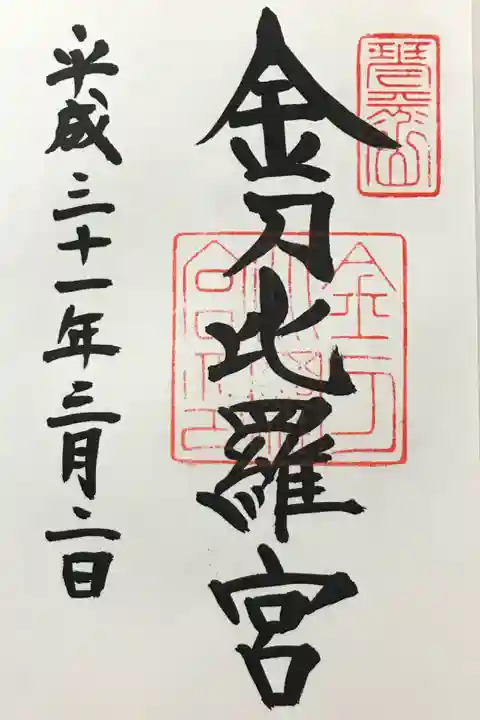 金刀比羅宮
平成三十一年三月二日